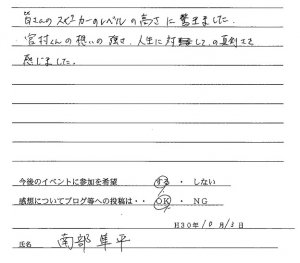 皆さんのスピーカーのレベルの高さに驚きました。
宮村くんの想いの強さ、人生に対しての真剣さを
感じました。
今後のイベントに参加を希望 する ・ しない
感想についてブログ等への投稿は・・ OK ・ NG
H30年10月13日
氏名 南部 隼平